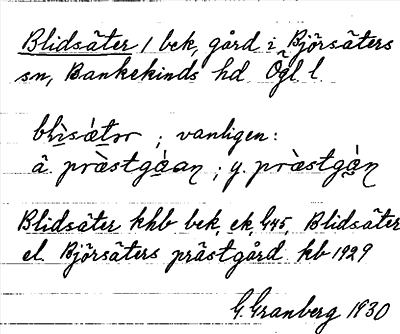 Blidsäter 1 bek, gård i Björsäters
sn, Bankekinds hd Ögl l.
blìsätər ; vanligen:
ä. prästgåan ; y. prästgån
Blidsäter khb bek, ek G45, Blidsäter
el. Björsäters prästgård kb 1929
G. Granberg 1930